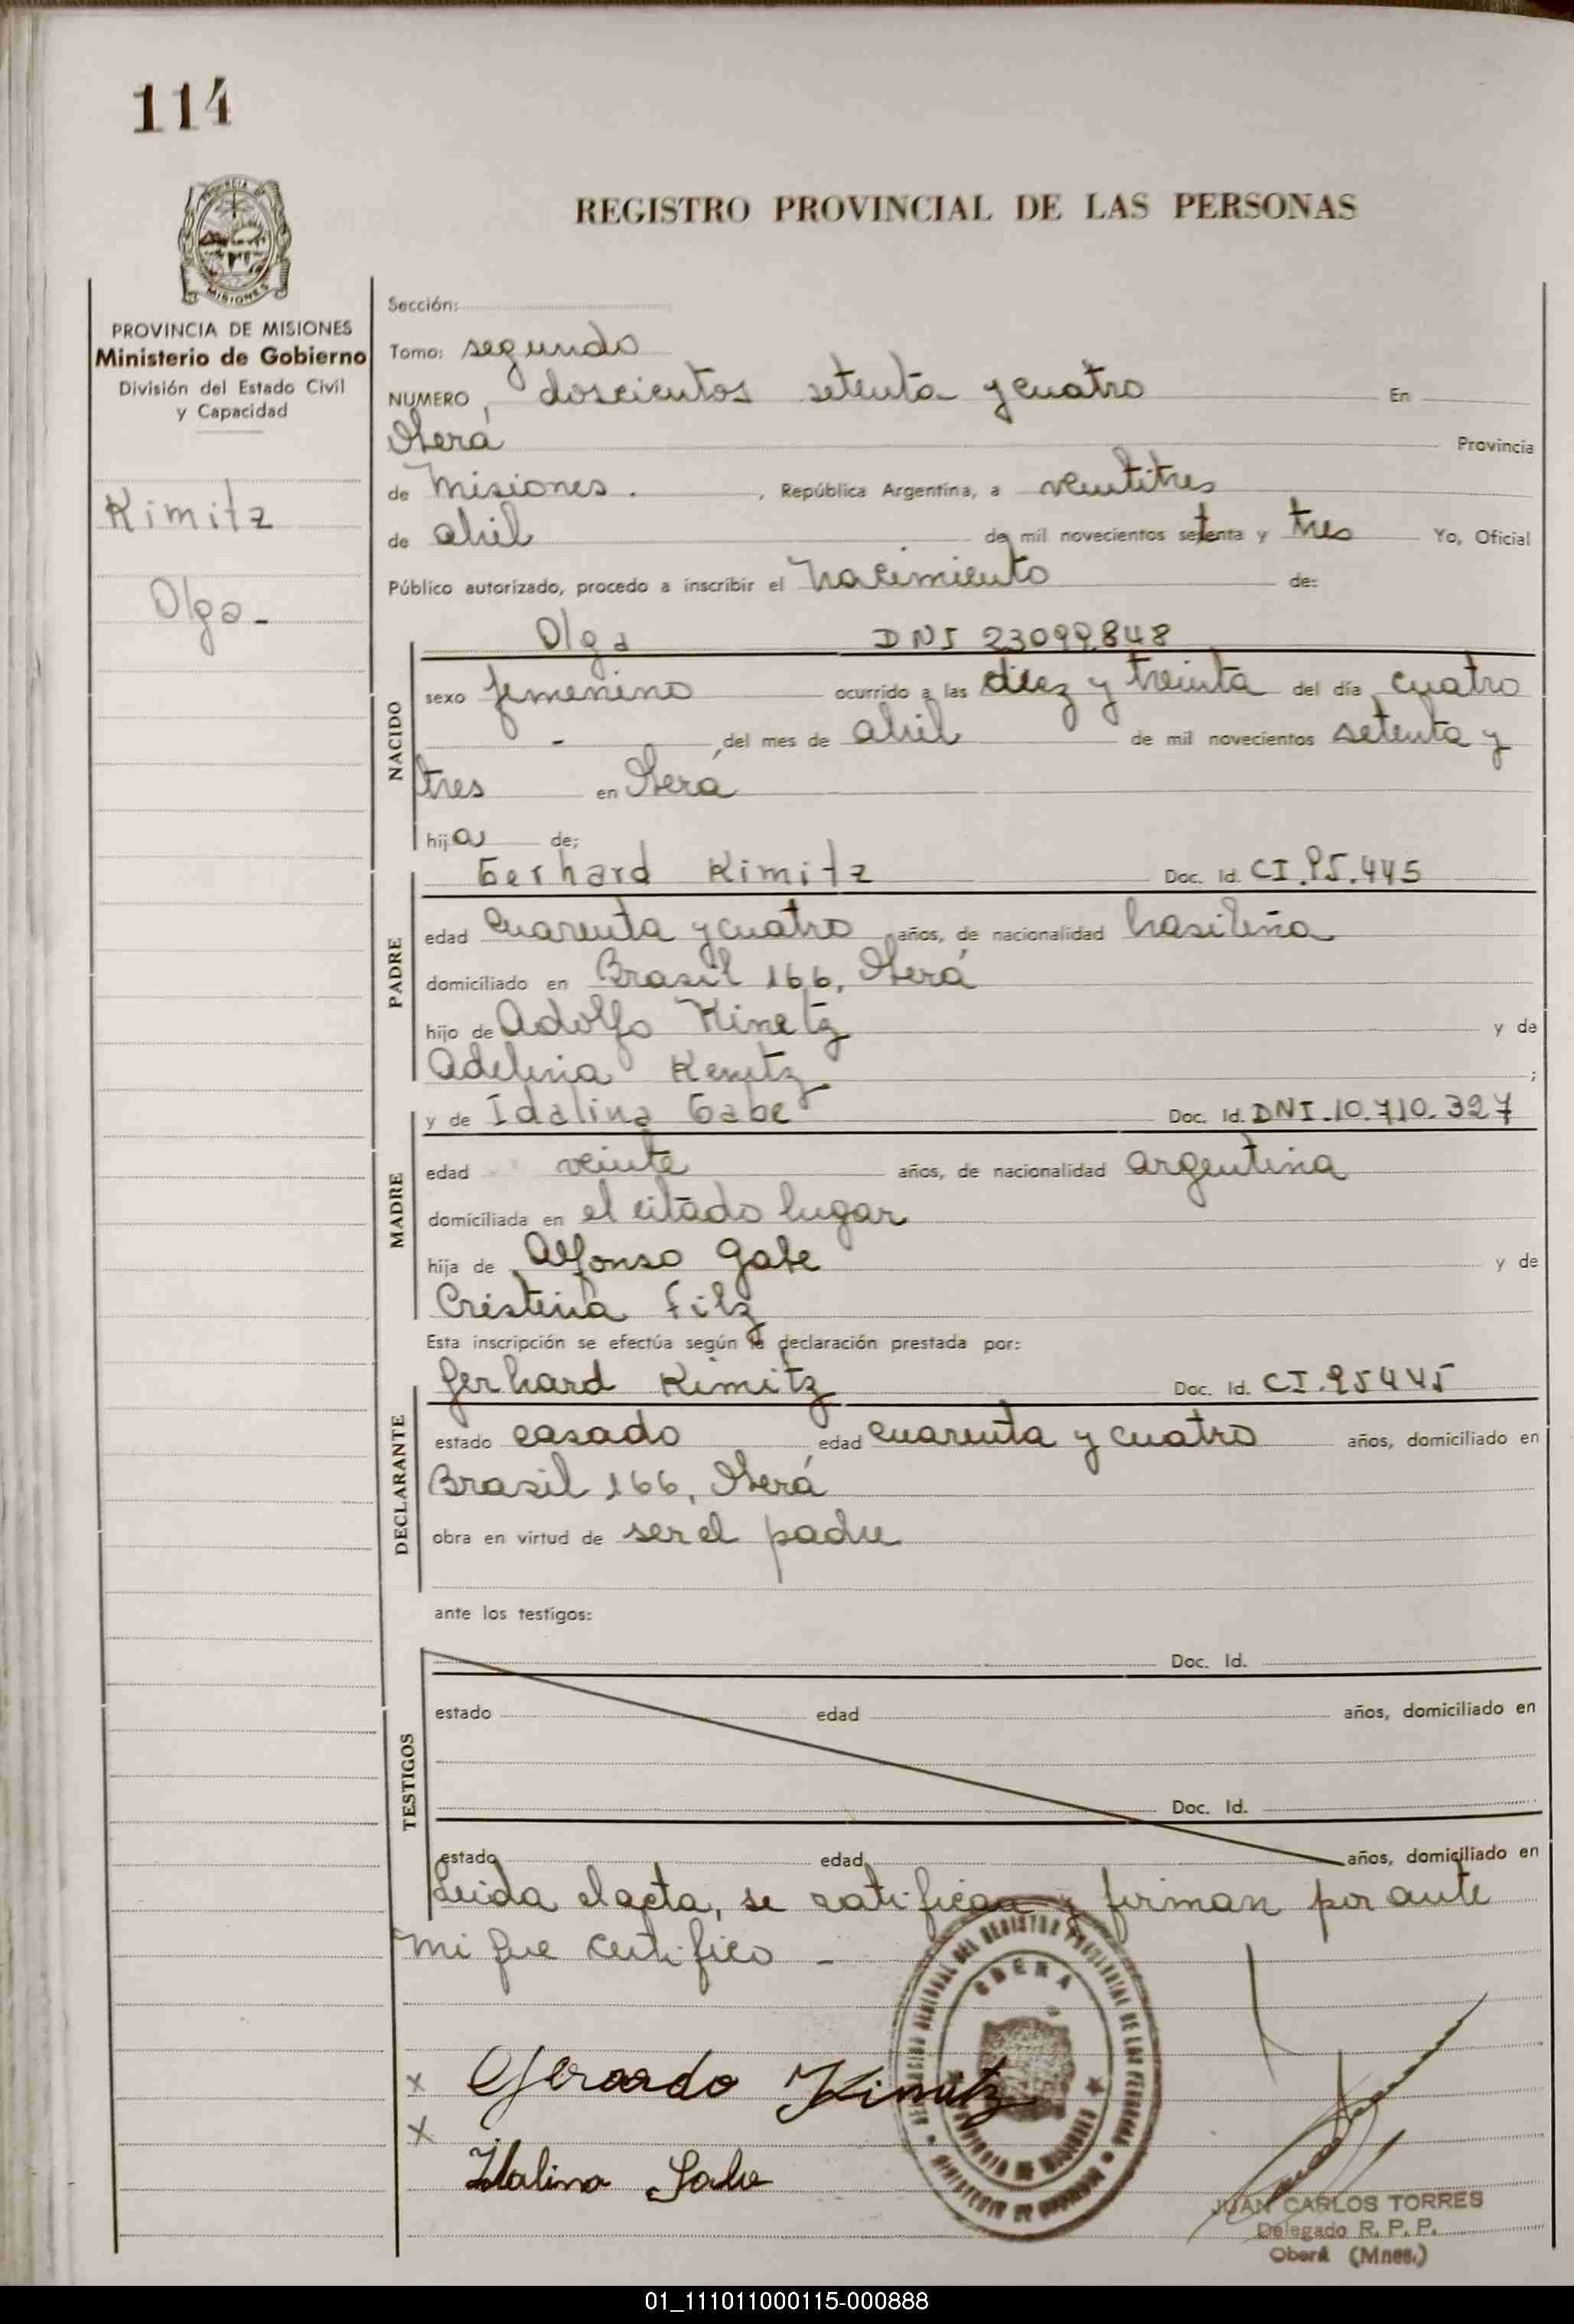 114
REGISTRO PROVINCIAL DE LAS PERSONAS
PROVINCIA DE MISIONES
Ministerio de Gobierno
División del Estado Civil
y Capacidad
Kimitz
Olga -
Sección:
Tomo: segundo
NUMERO, doscientos setenta y cuatro En
Oberá Provincia
de Misiones. , República Argentina, a veintitres
de abril de mil novecientos setenta y tres Yo, Oficial
Público autorizado, procedo a inscribir el nacimiento de:
NACIDO
Olga DNI 23099848
sexo femenino ocurrido a las diez y treinta del día cuatro
- , del mes de abril de mil novecientos setenta y
tres en Oberá
hija de;
PADRE
Gerhard Kimitz Doc. Id. CI.95.445
edad cuarenta y cuatro años, de nacionalidad brasileña
domiciliado en Brasil 166, Oberá
hijo de Adolfo Kinetz y de
Adelina Kemitz ;
MADRE
y de Idalina Gabe Doc. Id. DNI.10.710.327
edad veinte años, de nacionalidad argentina
domiciliada en el citado lugar
hija de Alfonso Gabe y de
Cristina Filz
Esta inscripción se efectúa según la declaración prestada por:
DECLARANTE
Gerhard Kimitz Doc. Id. CI.95445
estado casado edad cuarenta y cuatro años, domiciliado en
Brasil 166, Oberá
obra en virtud de ser el padre
ante los testigos:
TESTIGOS
Doc. Id.
estado edad años, domiciliado en
Doc. Id.
estado edad años, domiciliado en
Leida el acta, se ratifican y firman por ante
mi que certifico -
OBERA
x Gerardo Kimitz
x
Idalina Gabe
JUAN CARLOS TORRES
Delegado R. P. P.
Oberá (Mnes.)
01_111011000115-000888